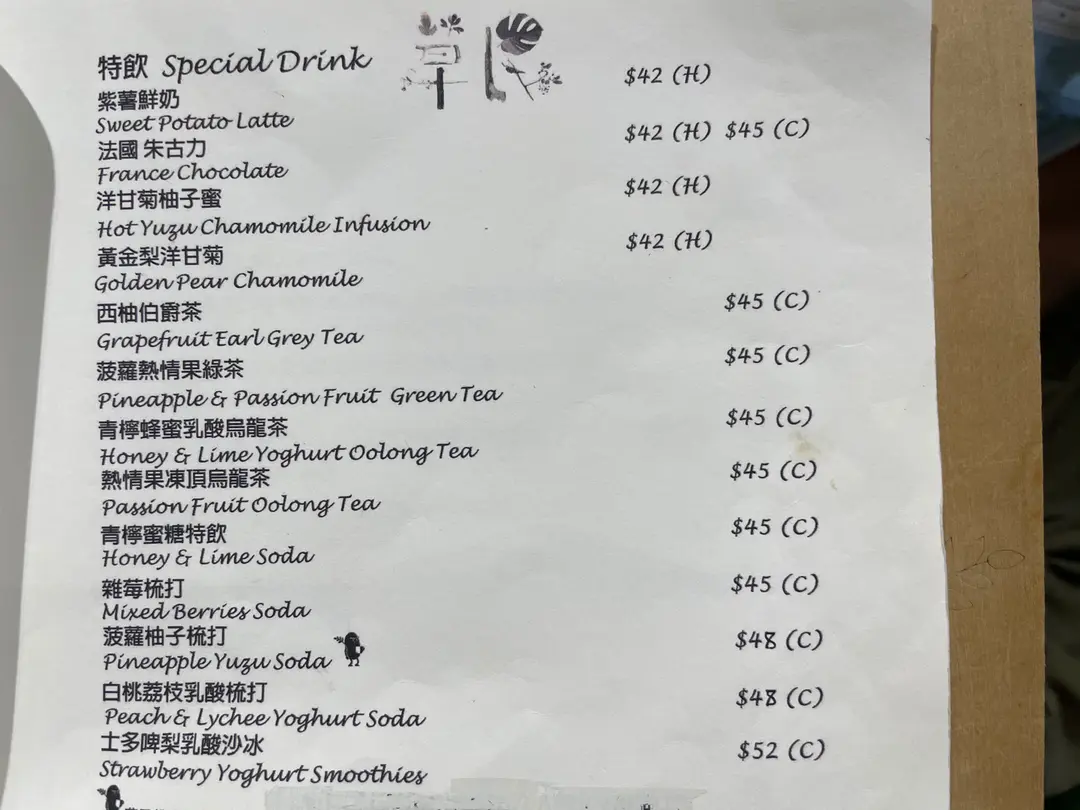 草民
特飲 Special Drink
紫薯鮮奶 $42 (H)
Sweet Potato Latte
法國 朱古力 $42 (H) $45 (C)
France Chocolate
洋甘菊柚子蜜 $42 (H)
Hot Yuzu Chamomile Infusion
黃金梨洋甘菊 $42 (H)
Golden Pear Chamomile
西柚伯爵茶 $45 (C)
Grapefruit Earl Grey Tea
菠蘿熱情果綠茶 $45 (C)
Pineapple & Passion Fruit Green Tea
青檸蜂蜜乳酸烏龍茶 $45 (C)
Honey & Lime Yoghurt Oolong Tea
熱情果凍頂烏龍茶 $45 (C)
Passion Fruit Oolong Tea
青檸蜜糖特飲 $45 (C)
Honey & Lime Soda
雜莓梳打 $45 (C)
Mixed Berries Soda
菠蘿柚子梳打 $48 (C)
Pineapple Yuzu Soda
白桃荔枝乳酸梳打 $48 (C)
Peach & Lychee Yoghurt Soda
士多啤梨乳酸沙冰 $52 (C)
Strawberry Yoghurt Smoothies